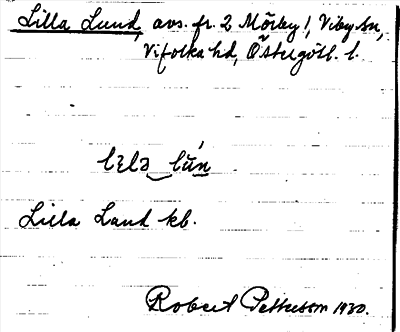 Lilla Lund, avs. fr. 2 Mörby 1, Viby sn,
Vifolka hd, Östergötl. l.
lɩlə lún
Lilla Lund kb.
Robert Pettersson 1930.